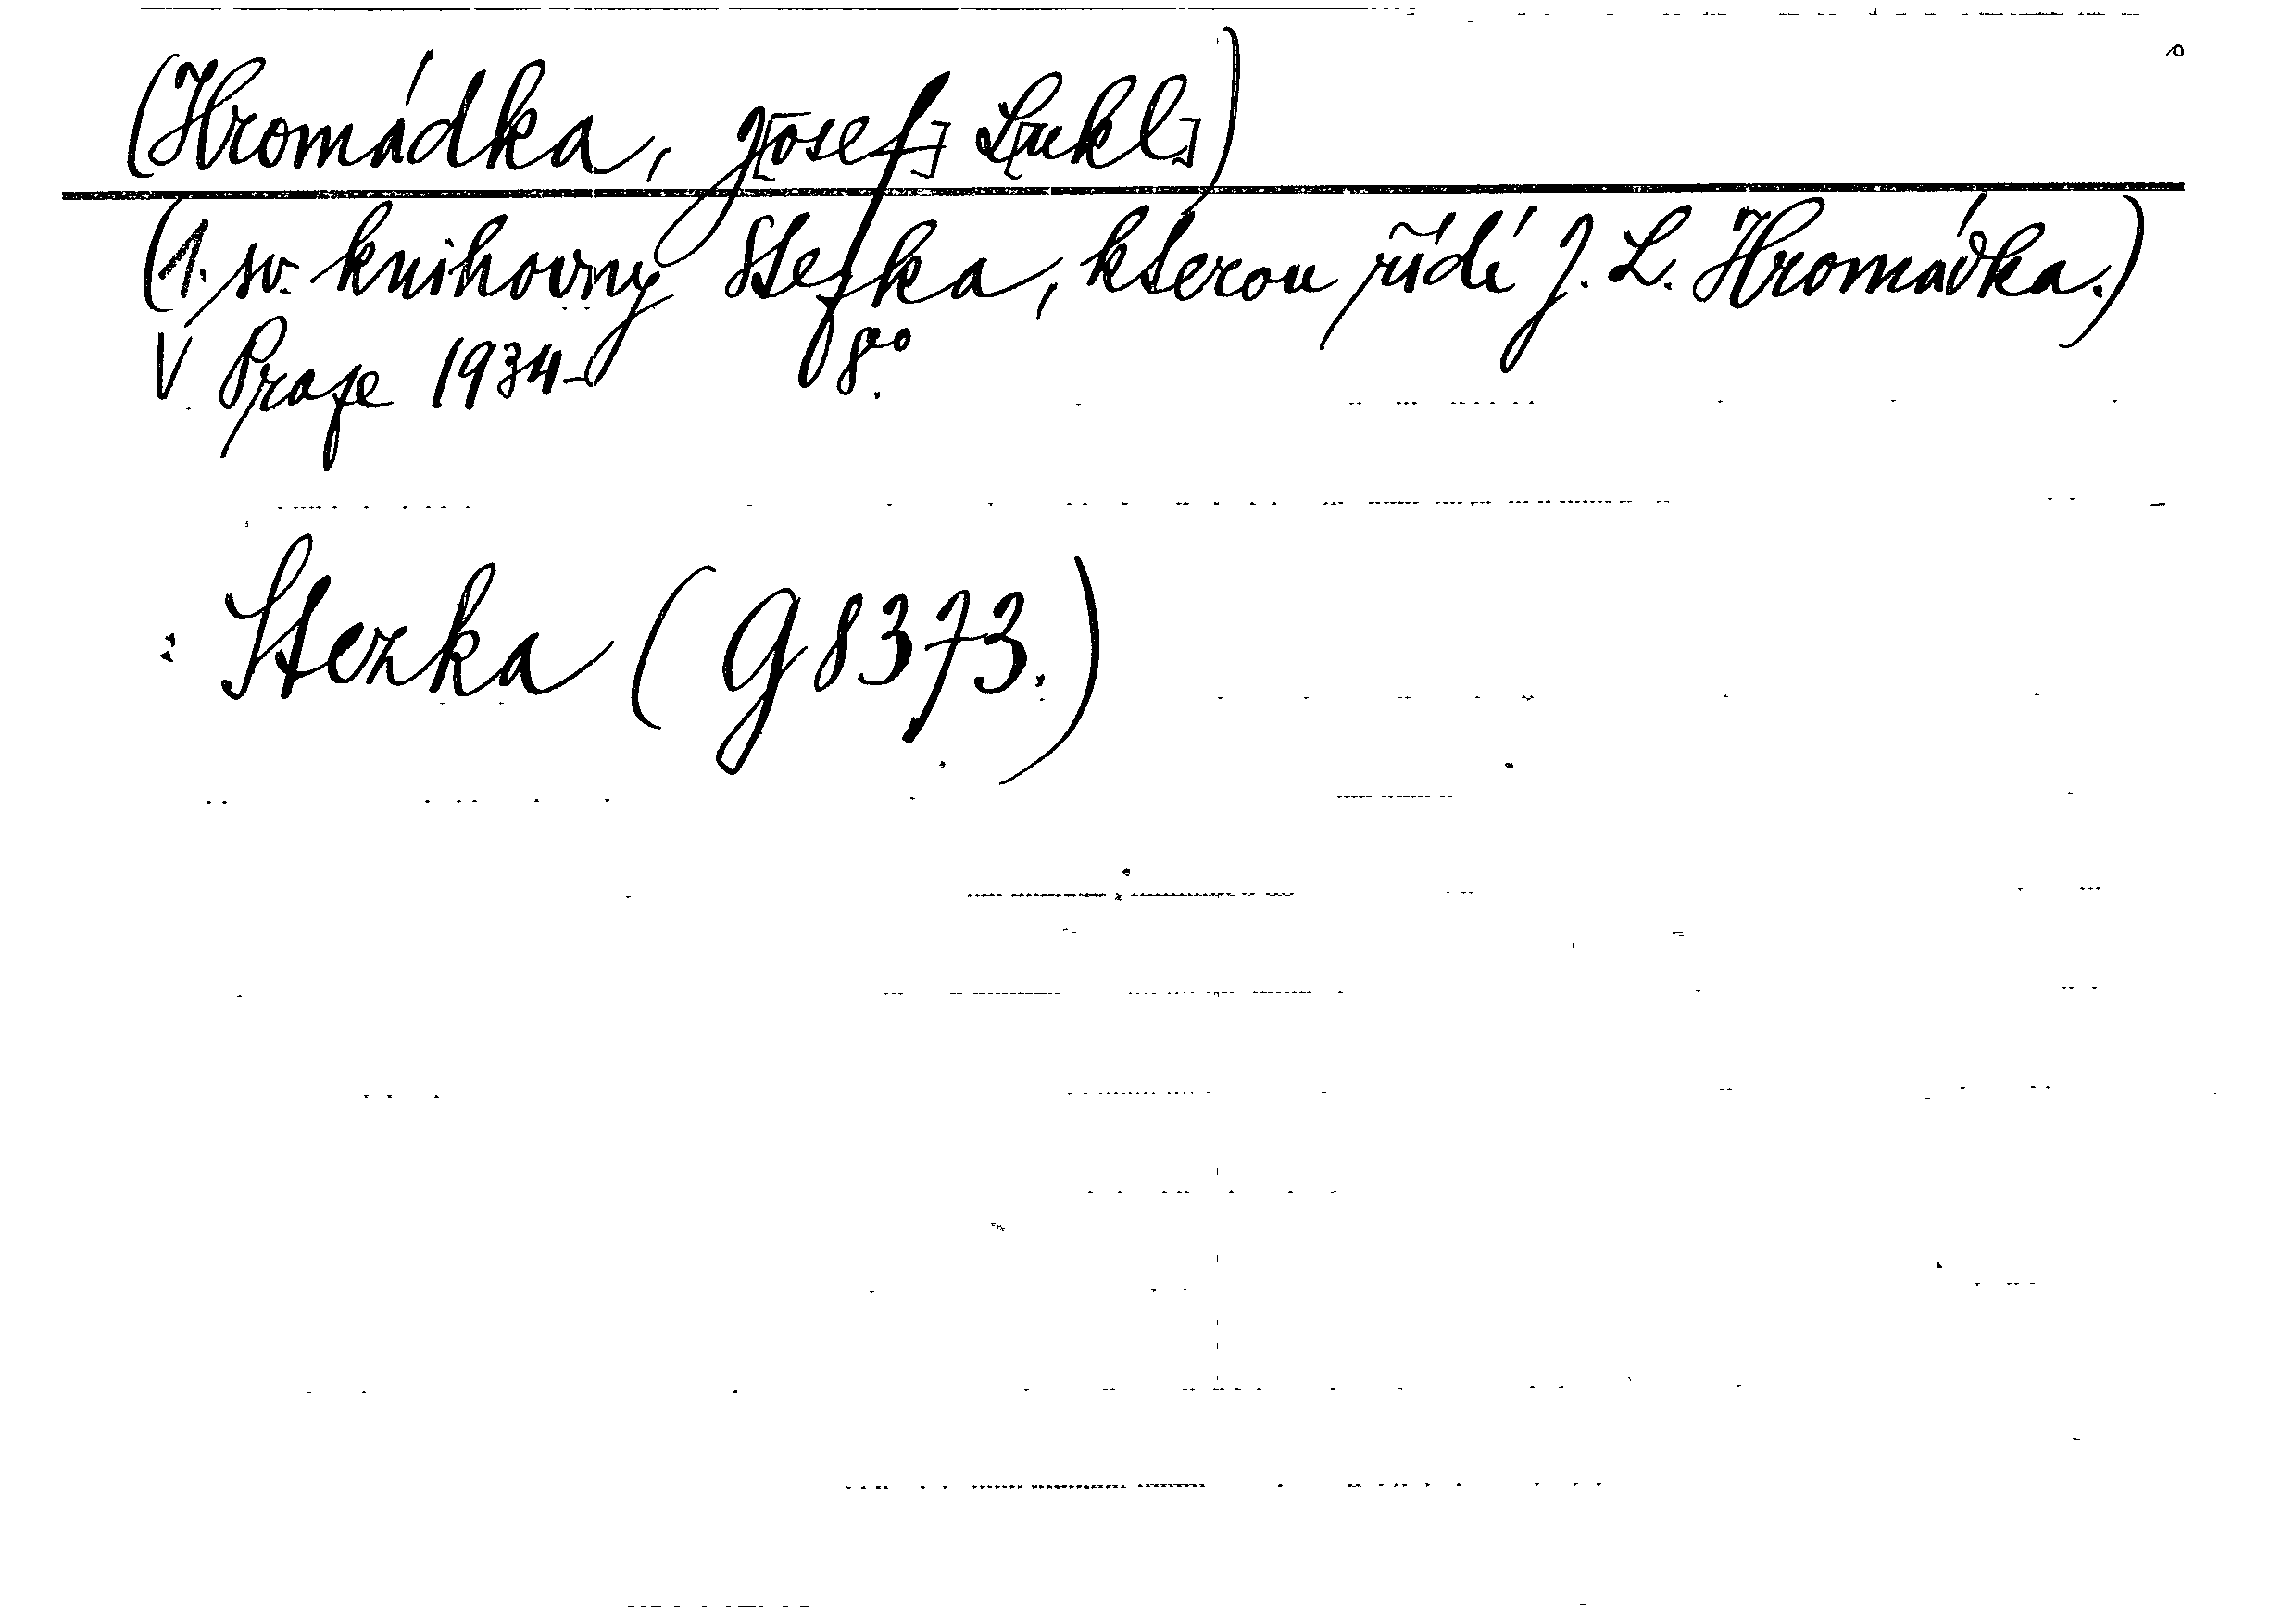 (Hromádka, J[osef] L[ukl])
(1. sv. knihovny Stezka, kterou řídí J. L. Hromádka.)
V Praze 1934- 8°.
: Stezka (G 8373.)